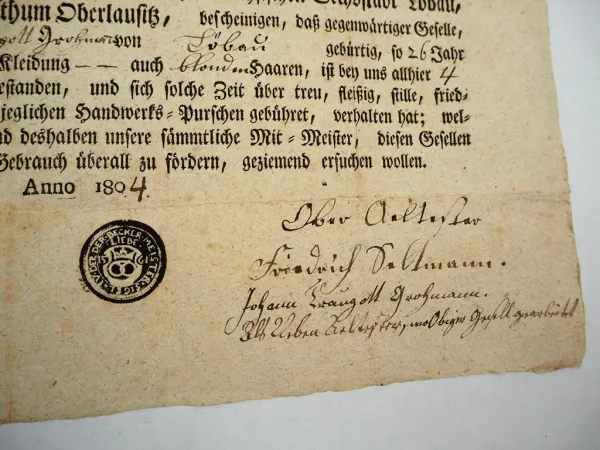 thum Oberlausitz, Sechsstadt Löbau,
bescheinigen, daß gegenwärtiger Geselle,
ott Grohmann von Löbau gebürtig, so 26 Jahr
Kleidung — — auch blonden Haaren, ist bey uns allhier 4
estanden, und sich solche Zeit über treu, fleißig, stille, fried-
jeglichen Handwerks-Purschen gebühret, verhalten hat; wel-
d deshalben unsere sämmtliche Mit-Meister, diesen Gesellen
Gebrauch überall zu fördern, geziemend ersuchen wollen.
Anno 1804.
Ober Aeltester
Friedrich Seltmann.
Johann Traugott Grohmann.
Als Neben Aeltester, wo Obiger Gesell gearbeitet
DER BECKER MEISTER SIG
LIEBE